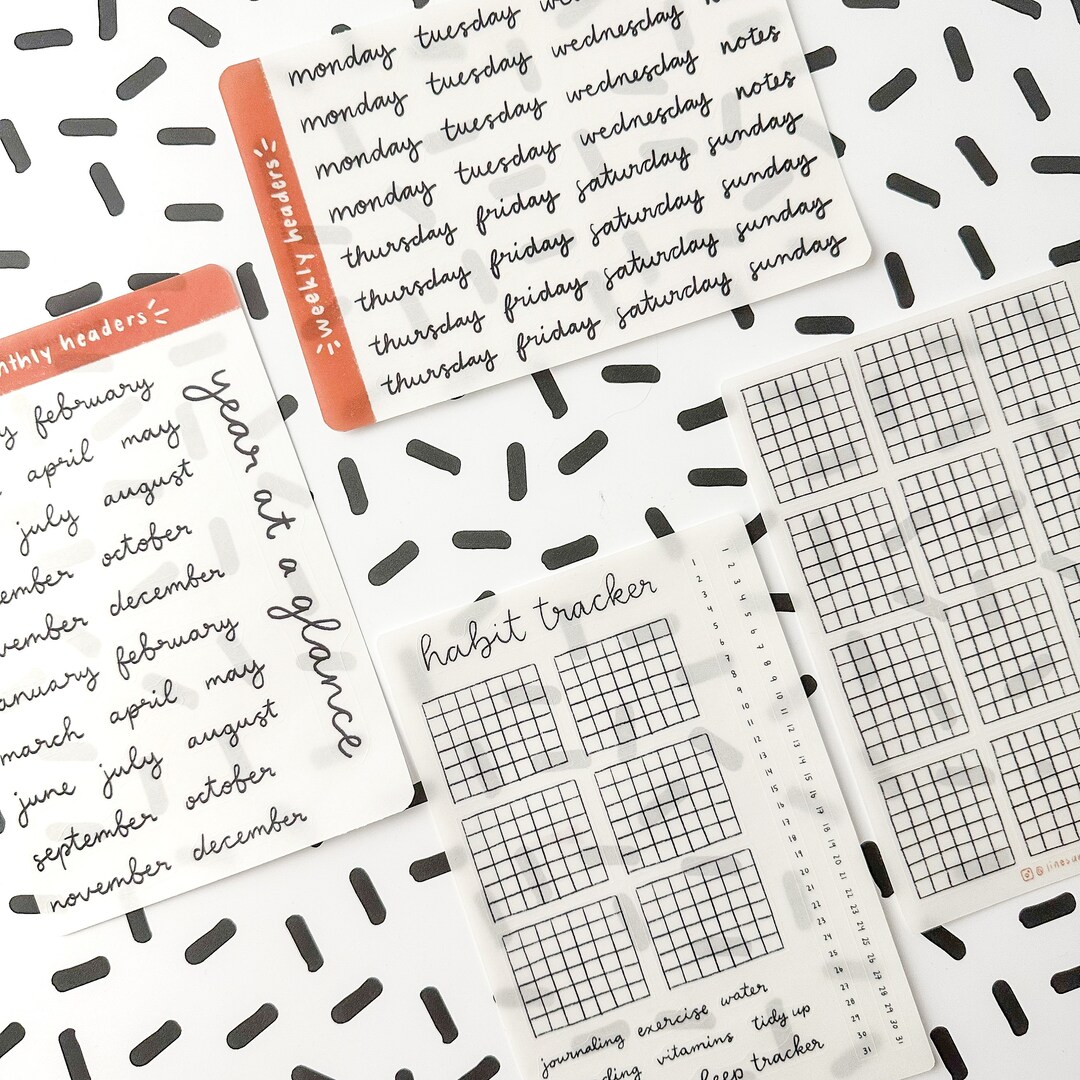 weekly headers
monday tuesday
monday tuesday wednesday
monday tuesday wednesday notes
monday tuesday wednesday notes
thursday friday saturday sunday
thursday friday saturday sunday
thursday friday saturday sunday
thursday friday saturday sunday
headers
february
april may
july august
october
december
february
march april may
june july august
september october
november december
year at a glance
habit tracker
1 2 3 4 5 6 7 8 9 10 11 12 13 14 15 16 17 18 19 20 21 22 23 24 25 26 27 28 29 30 31
1 2 3 4 5 6 7 8 9 10 11 12 13 14 15 16 17 18 19 20 21 22 23 24 25 26 27 28 29 30 31
journaling exercise water
vitamins tidy up
tracker